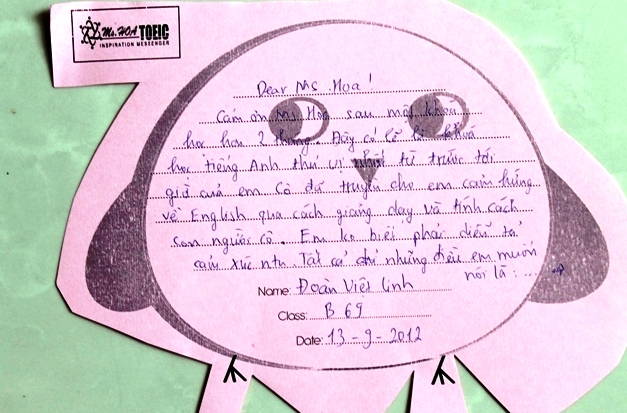 Ms. HOA TOEIC
INSPIRATION MESSENGER
Dear Ms Hoa!
Cám ơn Ms Hoa sau một khoá
học hơn 2 tháng. Đây có lẽ là khoá
học tiếng Anh thú vị nhất từ trước tới
giờ của em. Cô đã truyền cho em cảm hứng
về English qua cách giảng dạy và tính cách
con người cô. Em ko biết phải diễn tả
cảm xúc ntn. Tất cả chỉ những điều em muốn
nói là:
Name: Đoàn Việt Linh
Class: B 69
Date: 13-9-2012